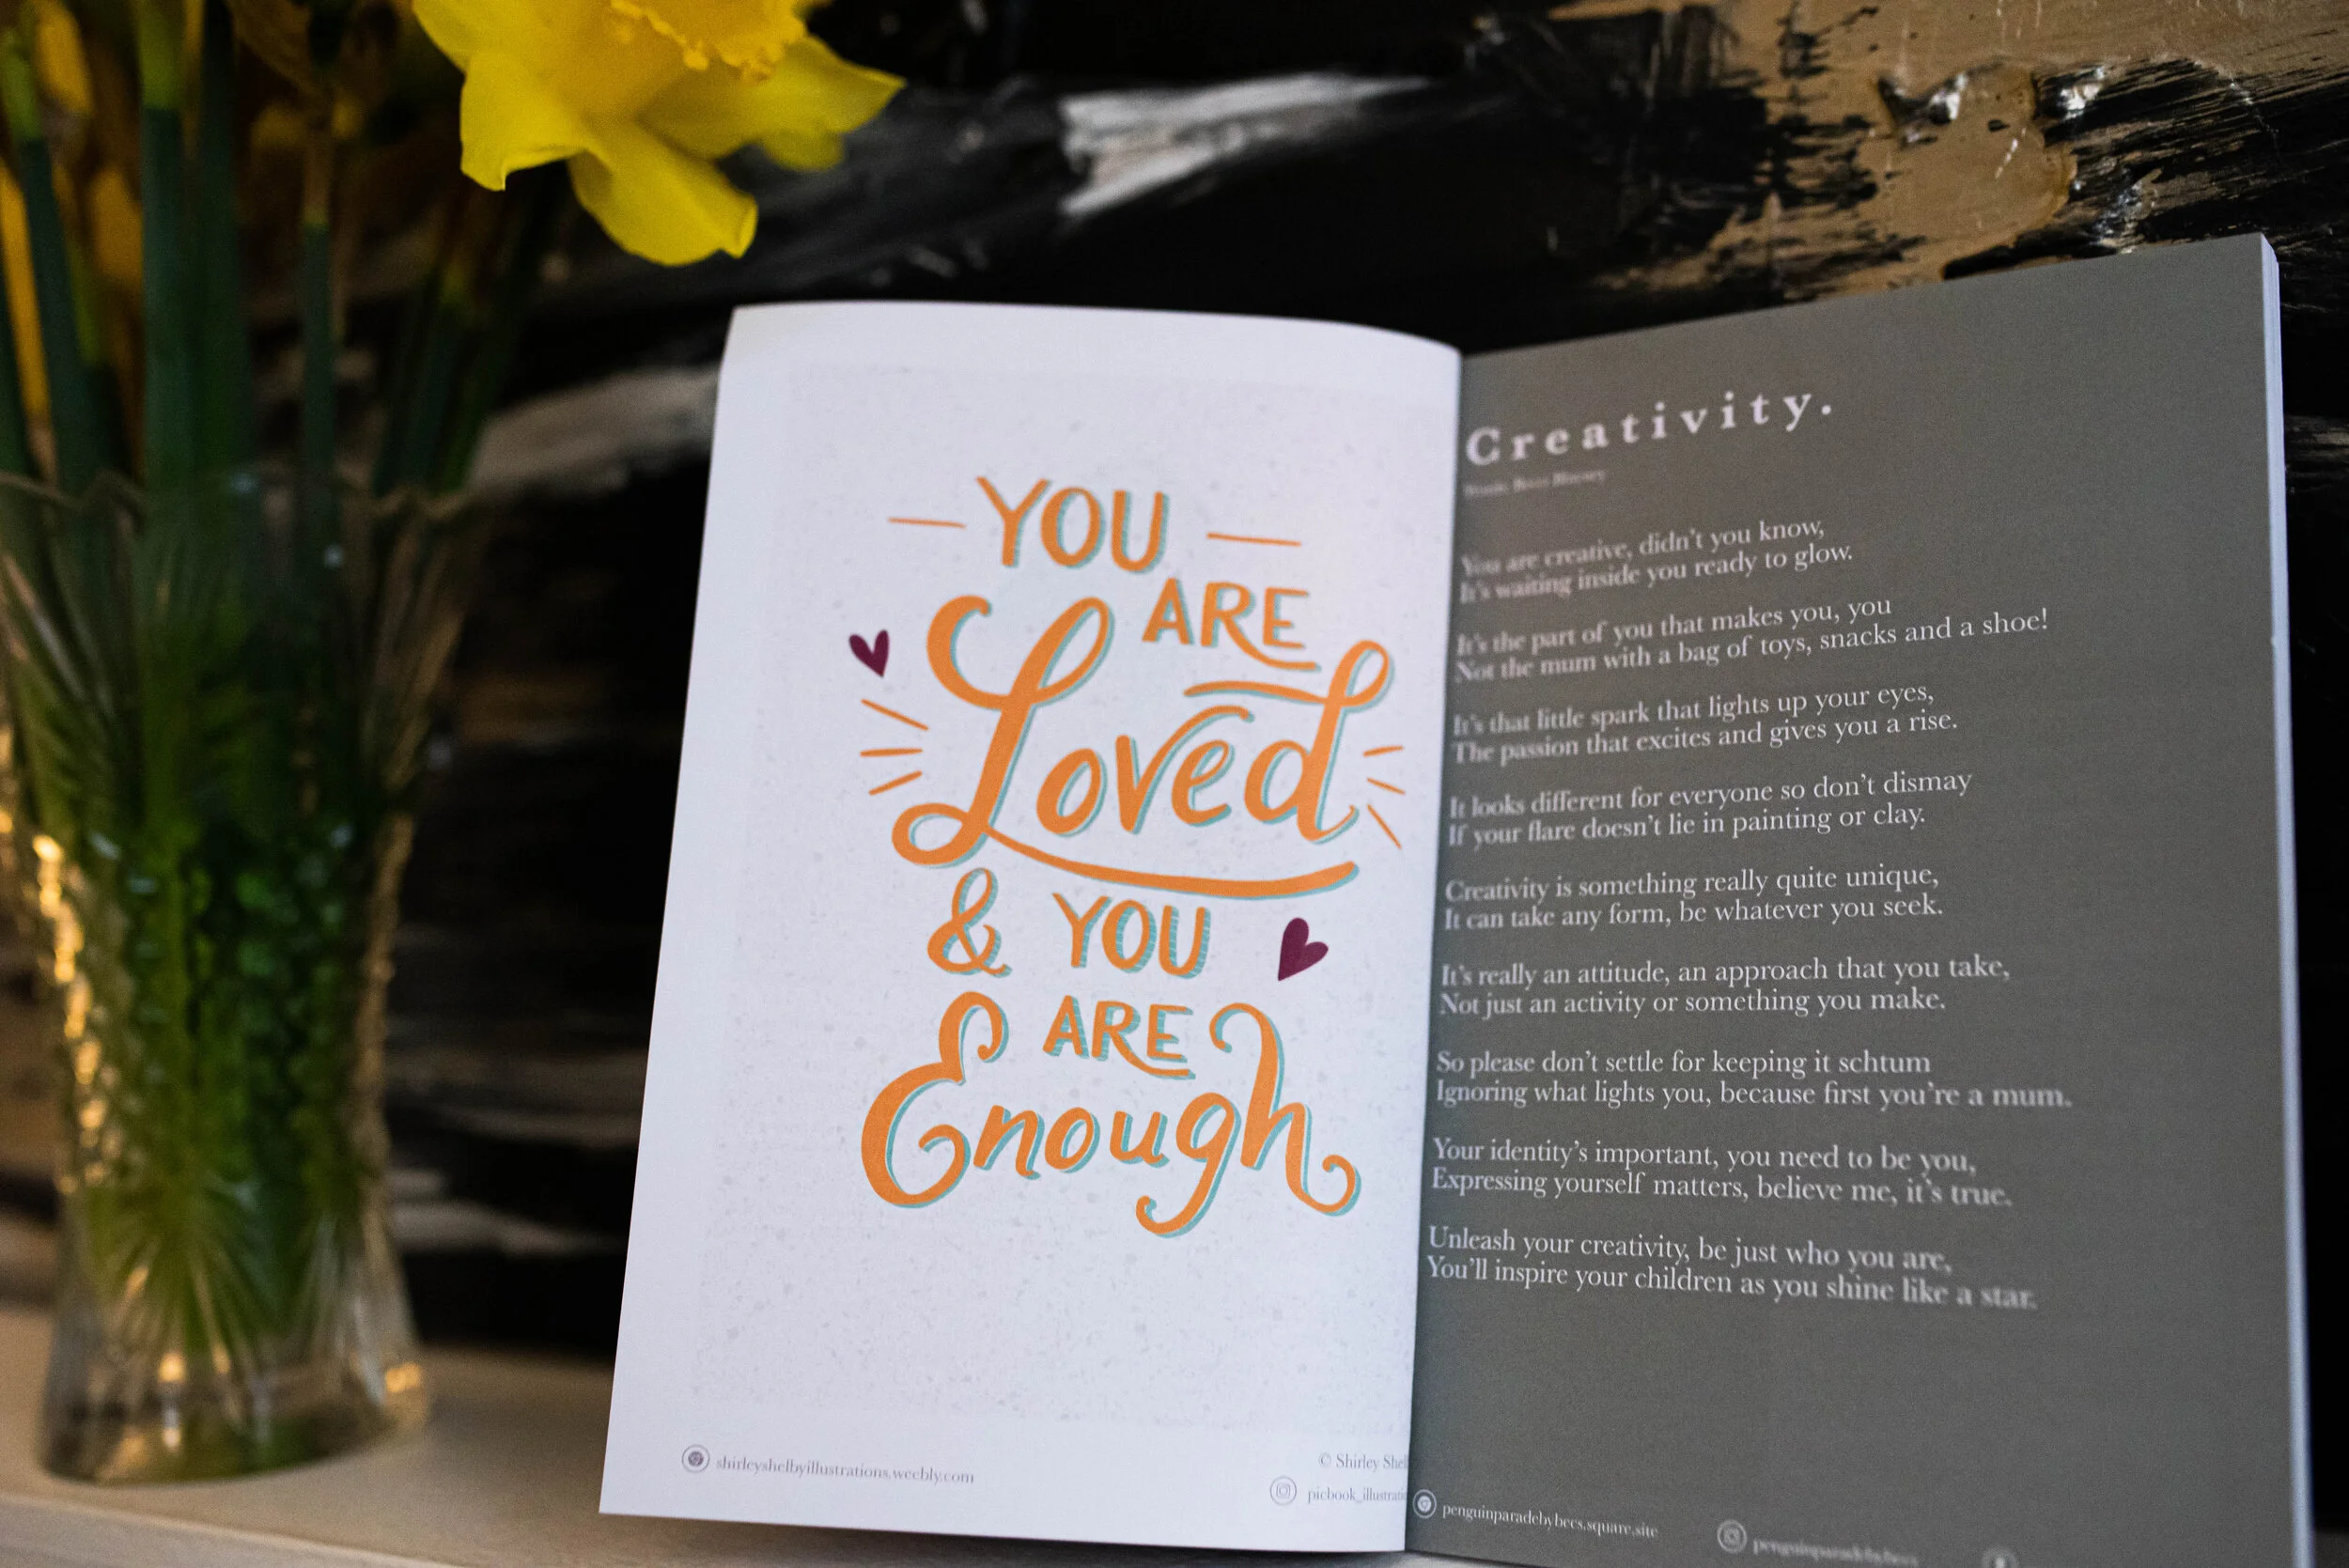 YOU
ARE
Loved
& YOU
ARE
Enough
shirleyshelbyillustrations.weebly.com
© Shirley
picbook_
Creativity.
You are creative, didn't you know,
It's waiting inside you ready to glow.
It's the part of you that makes you, you
Not the mum with a bag of toys, snacks and a shoe!
It's that little spark that lights up your eyes,
The passion that excites and gives you a rise.
It looks different for everyone so don't dismay
If your flare doesn't lie in painting or clay.
Creativity is something really quite unique,
It can take any form, be whatever you seek.
It's really an attitude, an approach that you take,
Not just an activity or something you make.
So please don't settle for keeping it schtum
Ignoring what lights you, because first you're a mum.
Your identity's important, you need to be you,
Expressing yourself matters, believe me, it's true.
Unleash your creativity, be just who you are,
You'll inspire your children as you shine like a star.
penguinparadebybees.square.site